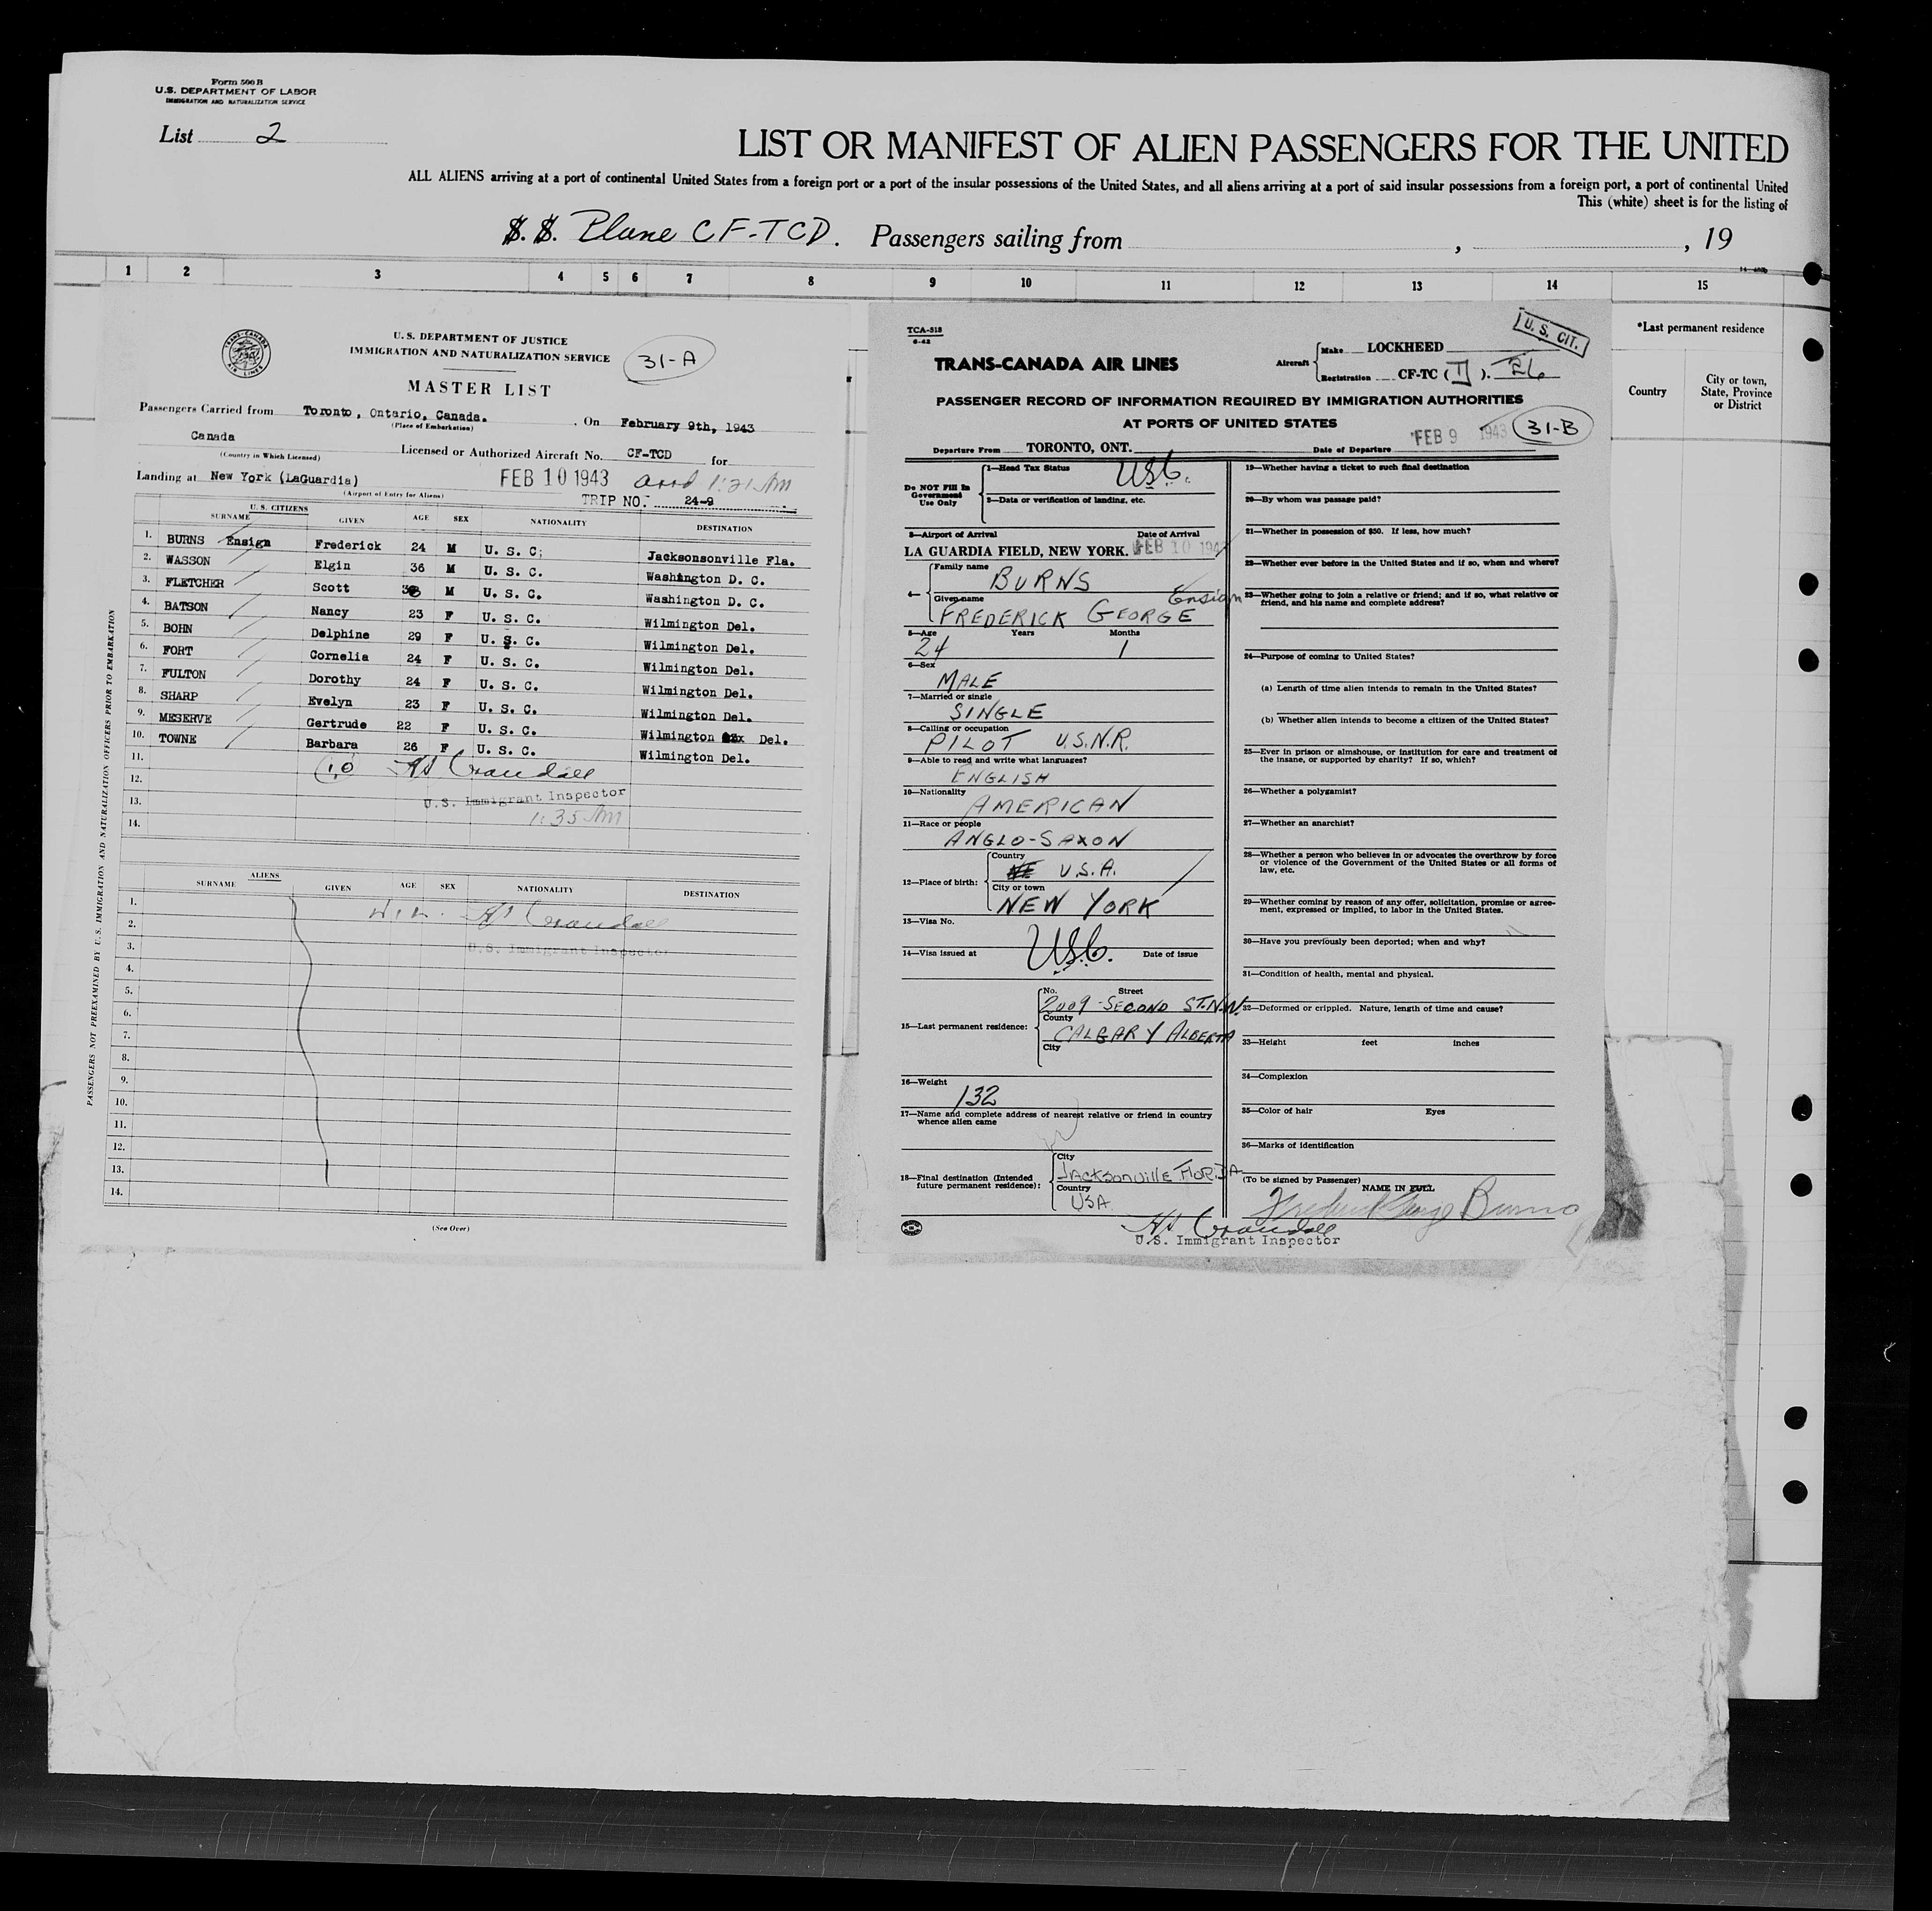 Form 500 B
U.S. DEPARTMENT OF LABOR
IMMIGRATION AND NATURALIZATION SERVICE
List 2
LIST OR MANIFEST OF ALIEN PASSENGERS FOR THE UNITED
ALL ALIENS arriving at a port of continental United States from a foreign port or a port of the insular possessions of the United States, and all aliens arriving at a port of said insular possessions from a foreign port, a port of continental United
This (white) sheet is for the listing of
S. S. Plane CF-TCD. Passengers sailing from , , 19
1 2 3 4 5 6 7 8 9 10 11 12 13 14 15
*Last permanent residence
Country
City or town, State, Province or District
TRANS-CANADA AIR LINES
U. S. DEPARTMENT OF JUSTICE
IMMIGRATION AND NATURALIZATION SERVICE
31-A
MASTER LIST
Passengers Carried from Toronto, Ontario, Canada. , On February 9th, 1943
(Place of Embarkation)
Canada Licensed or Authorized Aircraft No. CF-TCD for
(Country in Which Licensed)
Landing at New York (LaGuardia) FEB 10 1943 arrd 1:21 AM
(Airport of Entry for Aliens)
TRIP NO. 24-9
U. S. CITIZENS
SURNAME GIVEN AGE SEX NATIONALITY DESTINATION
1. BURNS Ensign Frederick 24 M U. S. C; Jacksonsonville Fla.
2. WASSON Elgin 36 M U. S. C. Washington D. C.
3. FLETCHER Scott M U. S. C. Washington D. C.
4. BATSON Nancy 23 F U. S. C. Wilmington Del.
5. BOHN Delphine 29 F U. S. C. Wilmington Del.
6. FORT Cornelia 24 F U. S. C. Wilmington Del.
7. FULTON Dorothy 24 F U. S. C. Wilmington Del.
8. SHARP Evelyn 23 F U. S. C. Wilmington Del.
9. MESERVE Gertrude 22 F U. S. C. Wilmington Del.
10. TOWNE Barbara 26 F U. S. C. Wilmington Del.
11.
10 Crandall
12.
U.S. Immigrant Inspector
13.
1:35 AM
14.
ALIENS
SURNAME GIVEN AGE SEX NATIONALITY DESTINATION
1.
Crandall
2.
3.
U.S. Immigrant Inspector
4.
5.
6.
7.
8.
9.
10.
11.
12.
13.
14.
(See Over)
PASSENGERS NOT PREEXAMINED BY U. S. IMMIGRATION AND NATURALIZATION OFFICERS PRIOR TO EMBARKATION
TCA-518
6-42
U. S. CIT.
TRANS-CANADA AIR LINES
Aircraft Make LOCKHEED
Registration CF-TC ( D ).
PASSENGER RECORD OF INFORMATION REQUIRED BY IMMIGRATION AUTHORITIES
AT PORTS OF UNITED STATES
31-B
Departure From TORONTO, ONT. Date of Departure FEB 9 1943
Do NOT Fill in Government Use Only
1—Head Tax Status USC.
2—Data or verification of landing, etc.
3—Airport of Arrival Date of Arrival
LA GUARDIA FIELD, NEW YORK. FEB 10 1943
4— Family name BURNS
Given name FREDERICK GEORGE Ensign
5—Age Years Months
24 1
6—Sex
MALE
7—Married or single
SINGLE
8—Calling or occupation
PILOT U.S.N.R.
9—Able to read and write what languages?
ENGLISH
10—Nationality
AMERICAN
11—Race or people
ANGLO-SAXON
12—Place of birth: Country
U.S.A.
City or town
NEW YORK
13—Visa No.
USC.
14—Visa issued at Date of issue
15—Last permanent residence: No. Street
2009 -SECOND ST.N.W.
County
CALGARY ALBERTA
City
16—Weight
132
17—Name and complete address of nearest relative or friend in country
whence alien came
18—Final destination (Intended
future permanent residence):
City
JACKSONVILLE FLORIDA
Country
USA
Crandall
U.S. Immigrant Inspector
19—Whether having a ticket to such final destination
20—By whom was passage paid?
21—Whether in possession of $50. If less, how much?
22—Whether ever before in the United States and if so, when and where?
23—Whether going to join a relative or friend; and if so, what relative or
friend, and his name and complete address?
24—Purpose of coming to United States?
(a) Length of time alien intends to remain in the United States?
(b) Whether alien intends to become a citizen of the United States?
25—Ever in prison or almshouse, or institution for care and treatment of
the insane, or supported by charity? If so, which?
26—Whether a polygamist?
27—Whether an anarchist?
28—Whether a person who believes in or advocates the overthrow by force
or violence of the Government of the United States or all forms of
law, etc.
29—Whether coming by reason of any offer, solicitation, promise or agree-
ment, expressed or implied, to labor in the United States.
30—Have you previously been deported; when and why?
31—Condition of health, mental and physical.
32—Deformed or crippled. Nature, length of time and cause?
33—Height feet inches
34—Complexion
35—Color of hair Eyes
36—Marks of identification
(To be signed by Passenger)
NAME IN FULL
Frederick George Burns